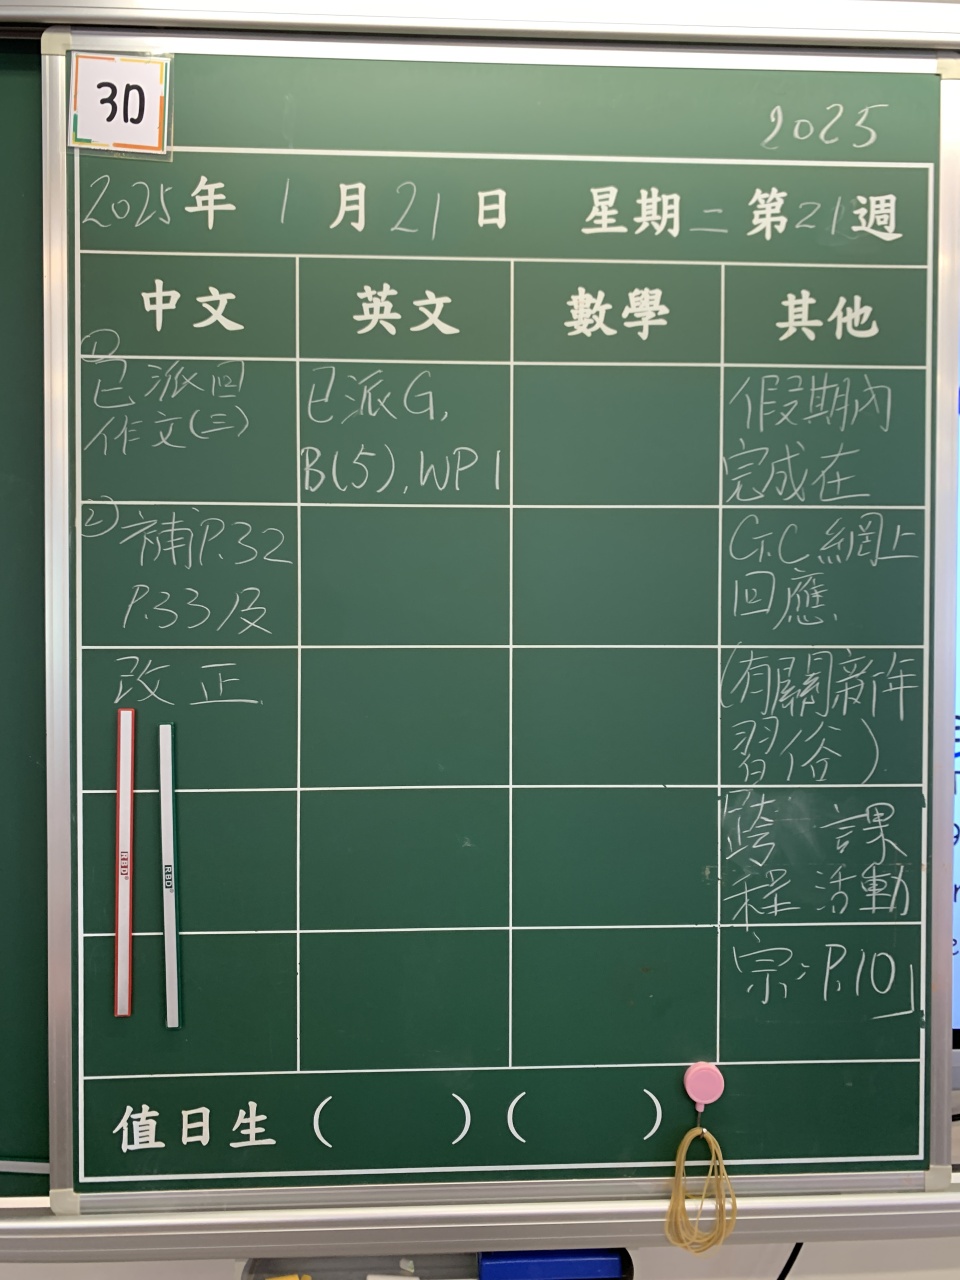 3D
2025
2025年 1月21日 星期二 第21週
中文 英文 數學 其他
①
已派回
作文(三)
②補P.32
P.33及
改正
已派G,
B(5),WP1
假期內
完成在
G.C網上
回應.
(有關新年
習俗)
跨 課
程活動
宗:P.10」
RBD
RBD
值日生 ( ) ( )